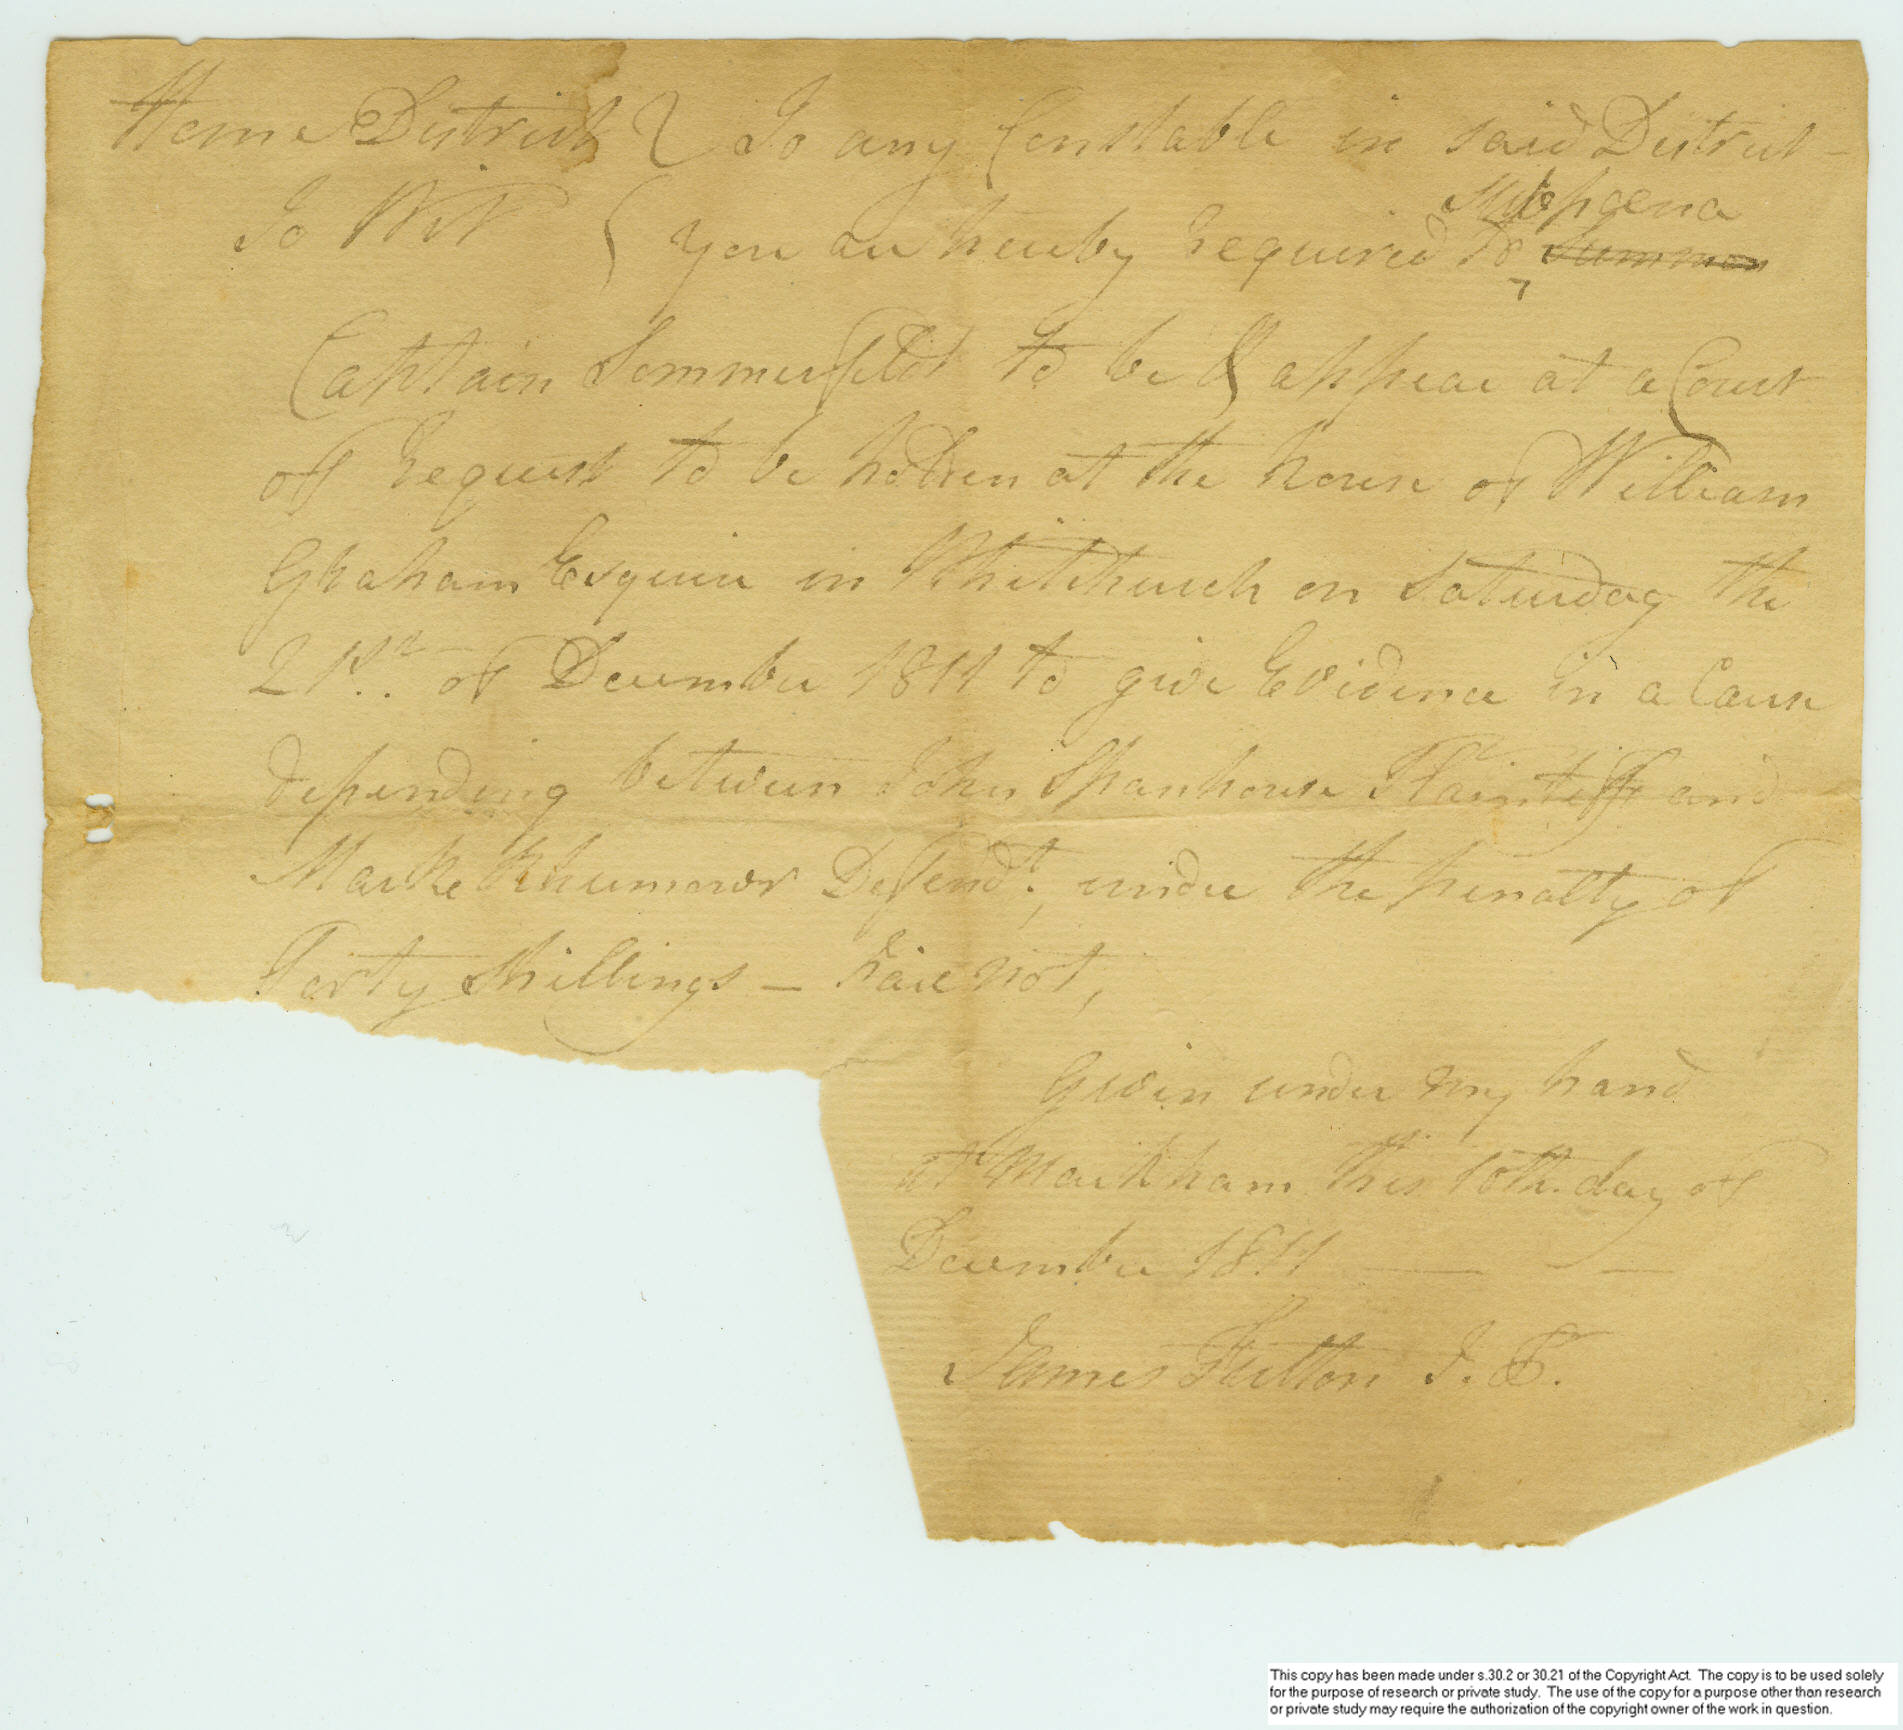 Home District } To any Constable in said District –
Subpoena
To Wit { you are hereby required to Summon
Captain Sommerfildt to be & appear at a Court
of Request to be holden at the house of William
Graham Esquire in Whitchurch on Saturday the
21st. of December 1811 to give Evidence in a Cause
depending between John Spanhouse Plaintiff and
Marke Defendt., under the penalty of
Forty Shillings – fail not,
Given under my hand
at Markham this 10th. day of
December 1811
James Fulton J. P.
This copy has been made under s.30.2 or 30.21 of the Copyright Act. The copy is to be used solely
for the purpose of research or private study. The use of the copy for a purpose other than research
or private study may require the authorization of the copyright owner of the work in question.